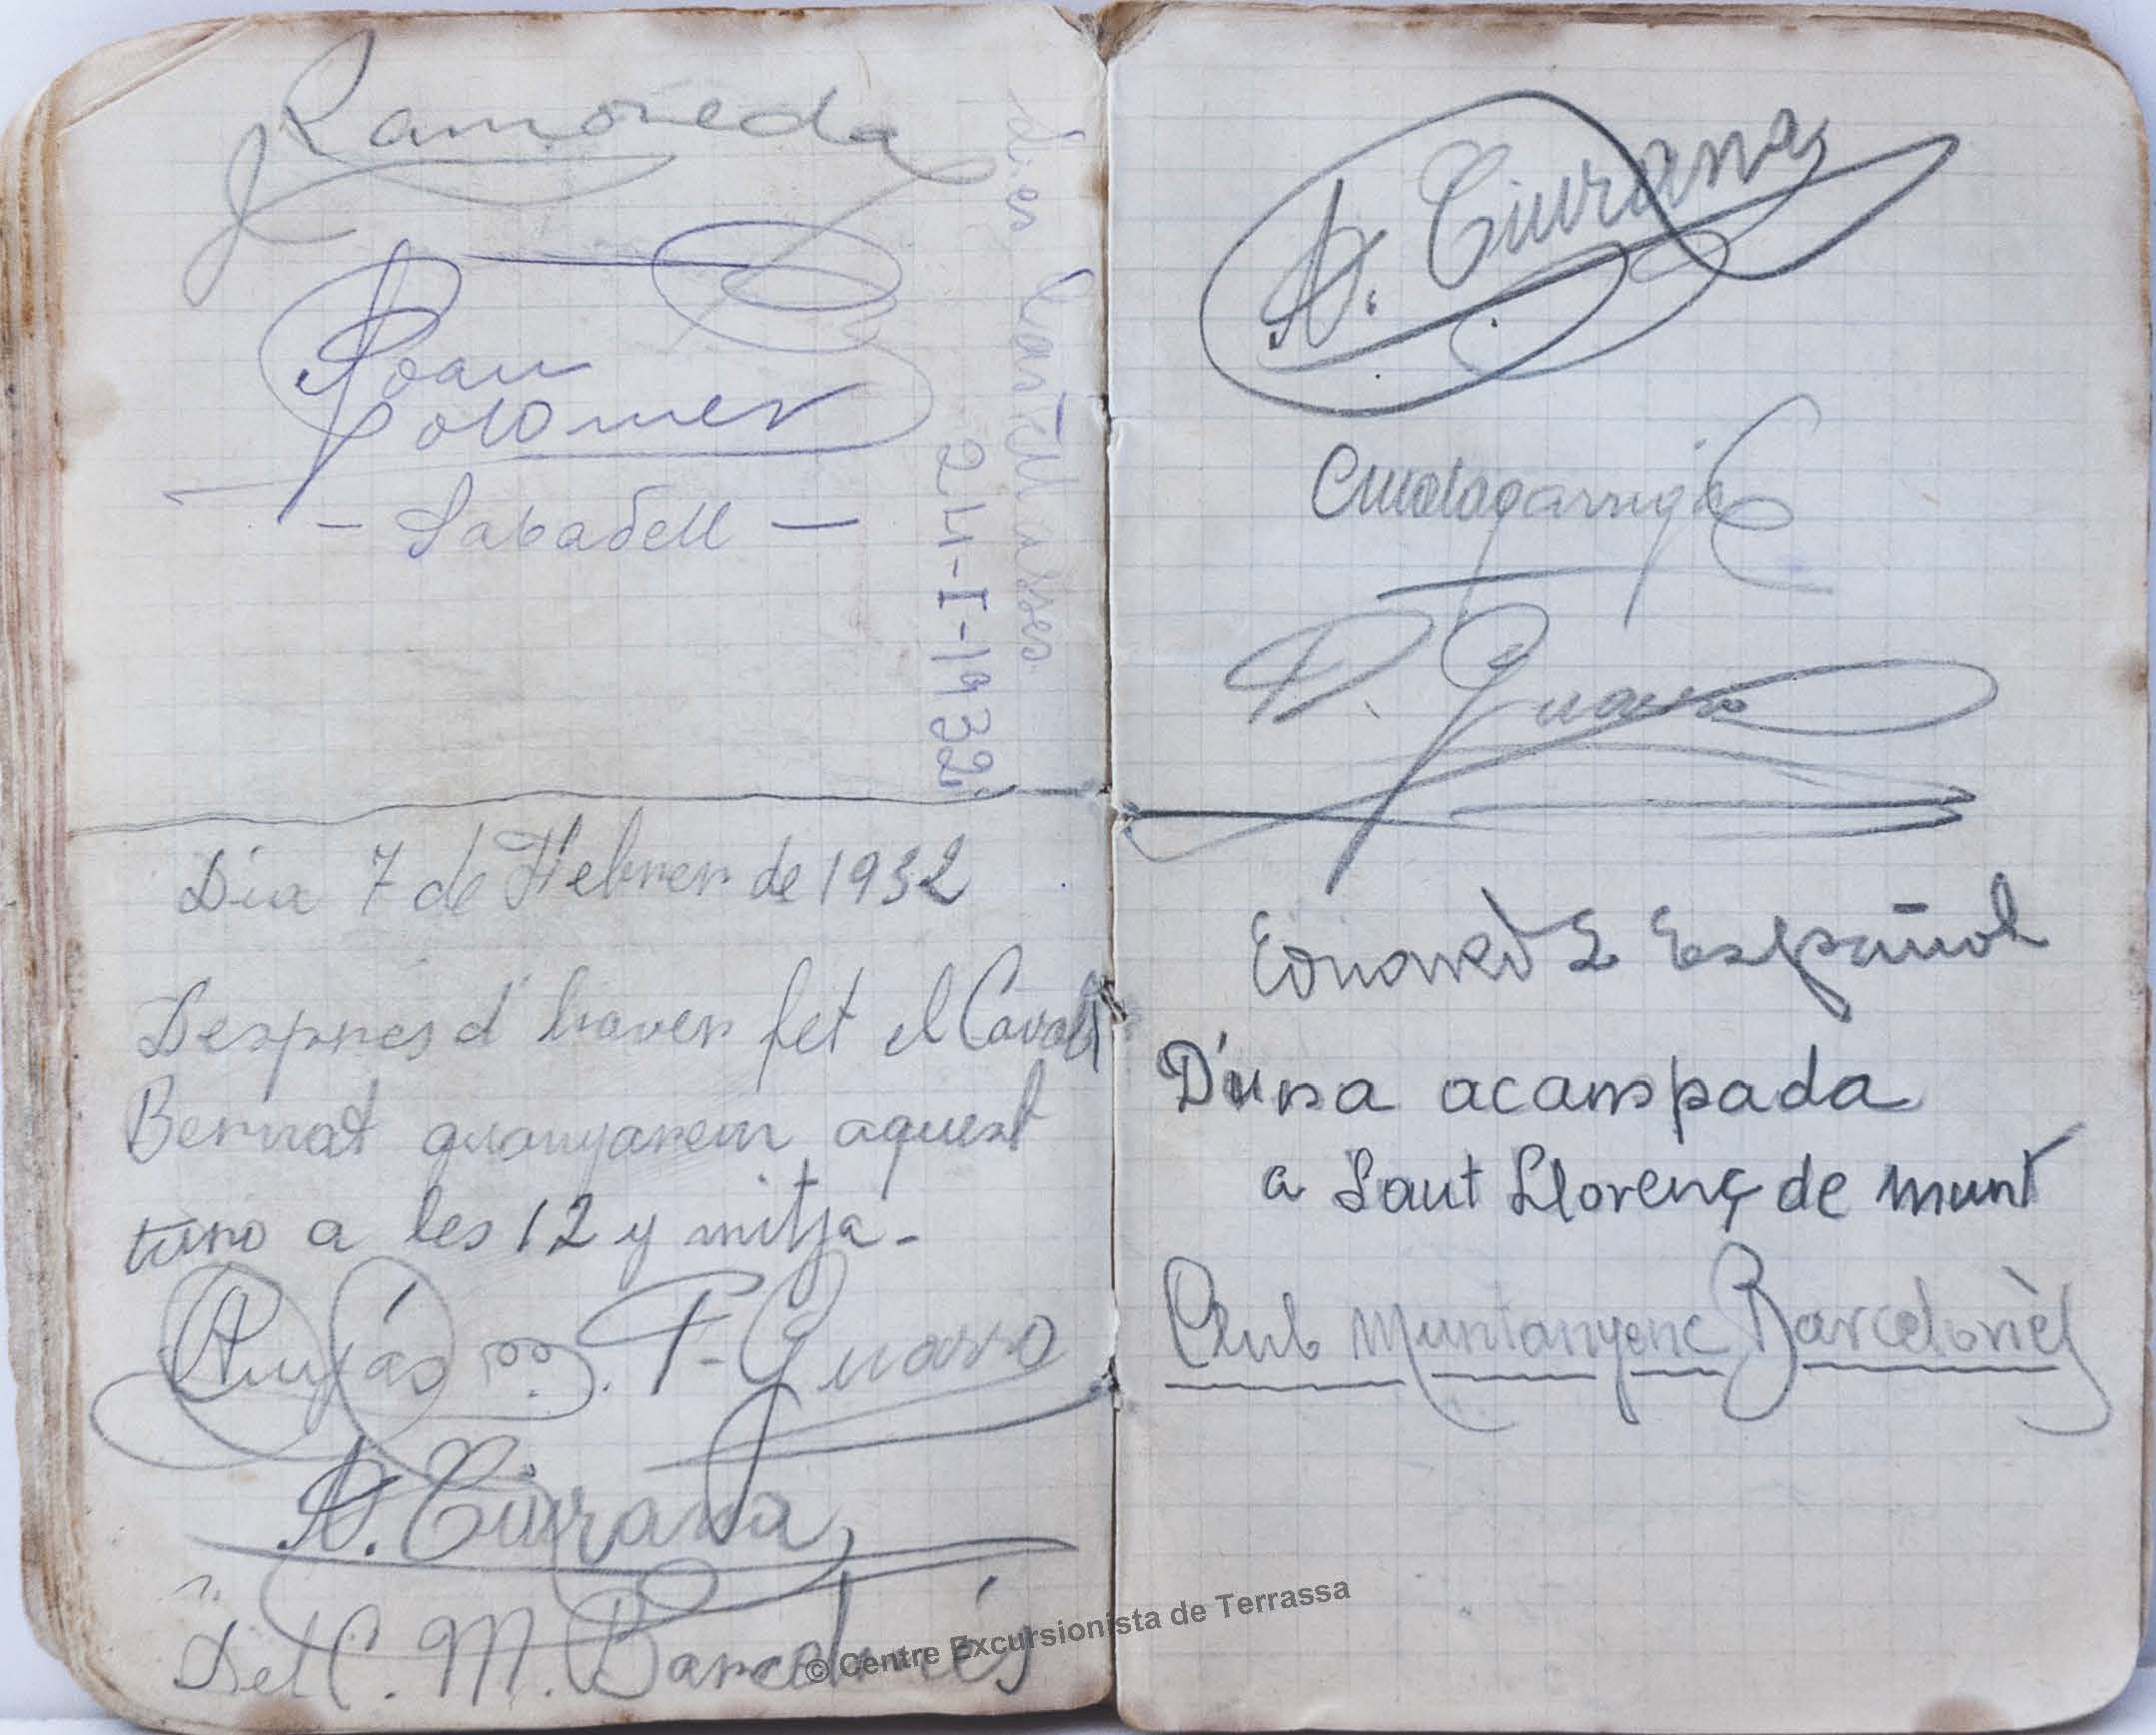 Ramoneda
Joan
Colomer
- Sabadell -
24-I-1932
Dia 7 de Febrer de 1932
Despres d'haver fet el Cavall
Bernat guanyarem aquest
turo a les 12 y mitja -
Anyás P. Guarro
A. Ciurana
Del C. M. Barcelonés
A. Ciurana
P. Guarro
Eduard E Español
D'una acampada
a Sant Llorenç de Munt
Club Muntanyenc Barcelonès
© Centre Excursionista de Terrassa